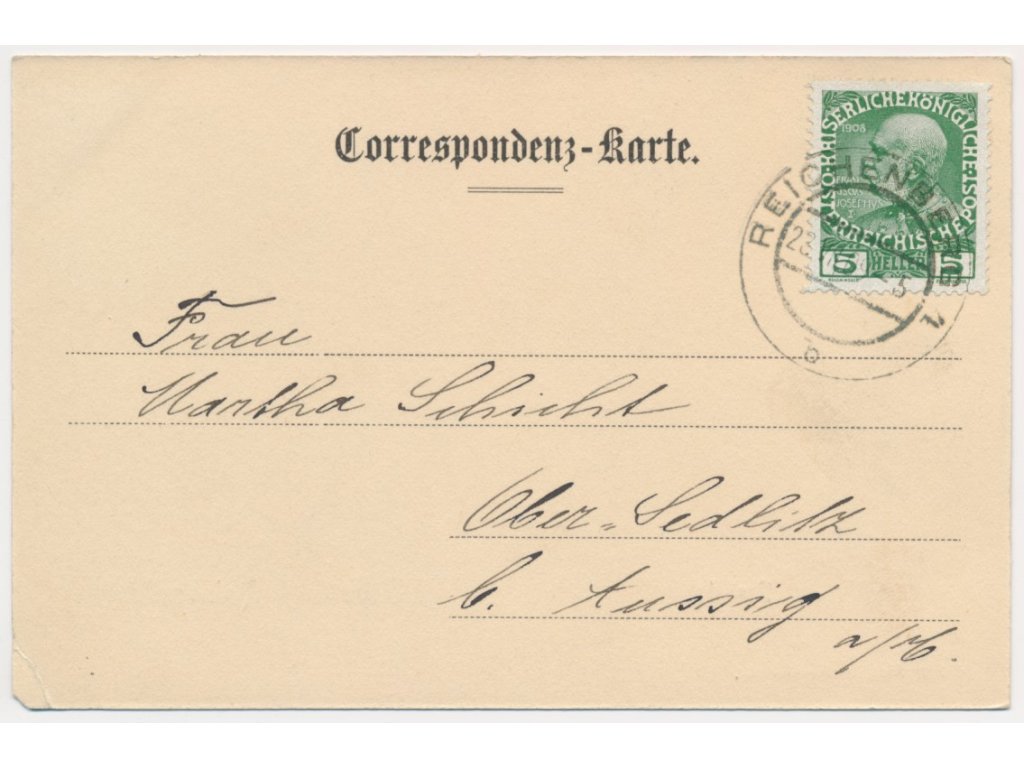 Correspondenz-Karte.
KAISERLICHE KÖNIGLICHE
ÖSTERREICHISCHE POST
1908
FRAN
CISCUS
JOSEPHUS
I
5 HELLER 5
REICHENBERG 1
b
Frau
Martha Schicht
Ober-Sedlitz
b. Aussig
a/E.